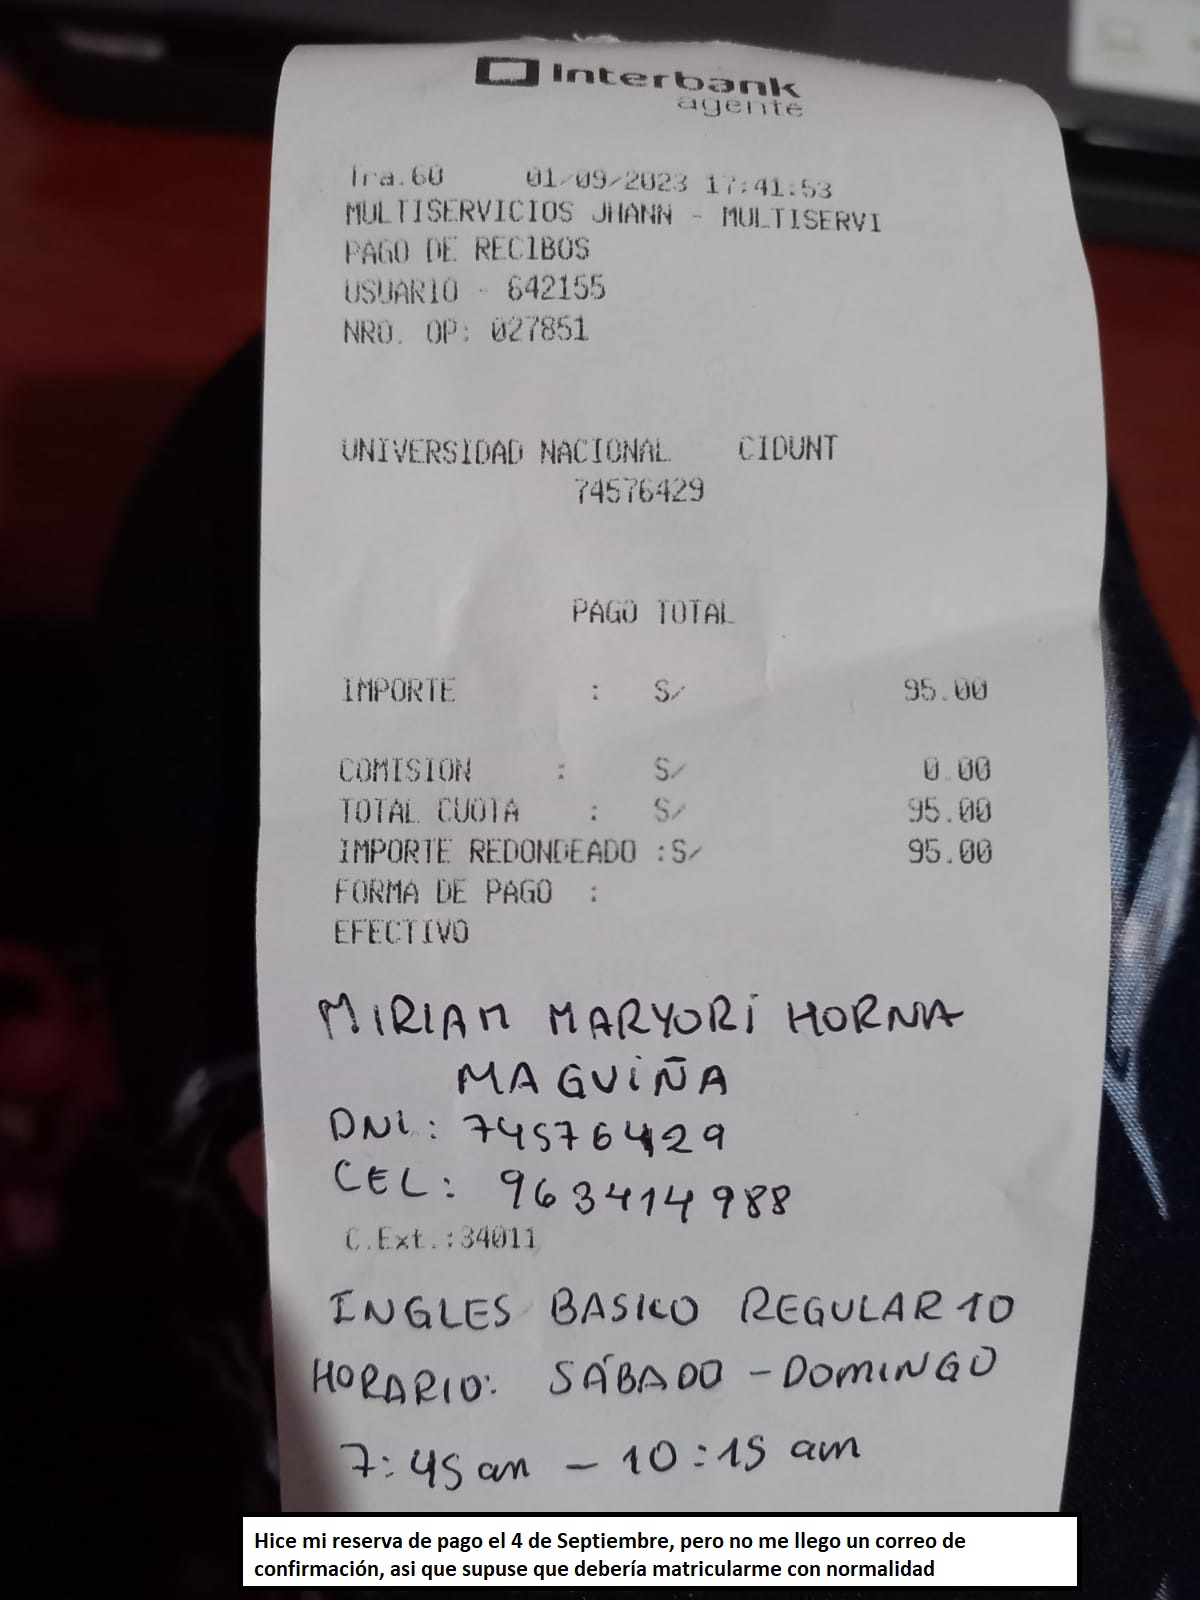 Interbank
agente
Tra.60 01/09/2023 17:41:53
MULTISERVICIOS JHANN - MULTISERVI
PAGO DE RECIBOS
USUARIO - 642155
NRO. OP: 027851
UNIVERSIDAD NACIONAL CIDUNT
74576429
PAGO TOTAL
IMPORTE : S/ 95.00
COMISION : S/ 0.00
TOTAL CUOTA : S/ 95.00
IMPORTE REDONDEADO :S/ 95.00
FORMA DE PAGO :
EFECTIVO
MIRIAM MARYORI HORNA
MAGUIÑA
DNI: 74576429
CEL: 963414988
C.Ext.:34011
INGLES BASICO REGULAR 10
HORARIO: SÁBADO - DOMINGO
7:45 am - 10:15 am
Hice mi reserva de pago el 4 de Septiembre, pero no me llego un correo de
confirmación, asi que supuse que debería matricularme con normalidad